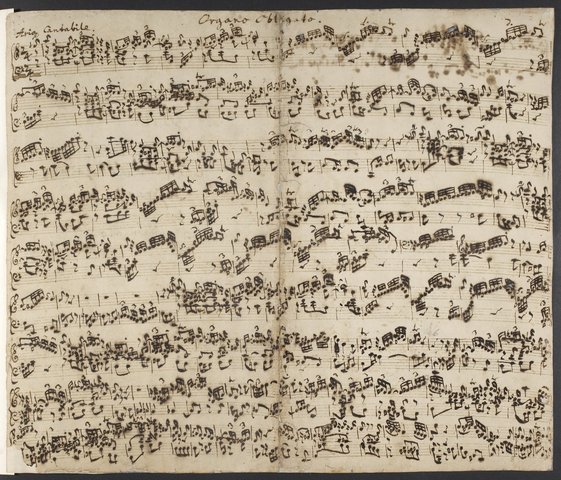 Organo Obligato.
Aria Cantabile